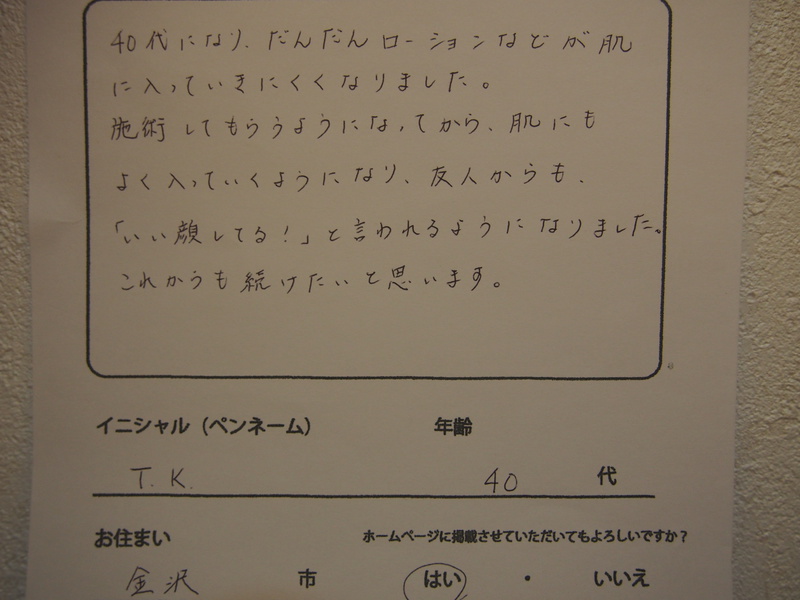 40代になり、だんだんローションなどが肌
に入っていきにくくなりました。
施術してもらうようになってから、肌にも
よく入っていくようになり、友人からも、
「いい顔してる!」と言われるようになりました。
これからも続けたいと思います。
イニシャル（ペンネーム） 年齢
T.K. 40 代
お住まい ホームページに掲載させていただいてもよろしいですか？
金沢 市 はい ・ いいえ